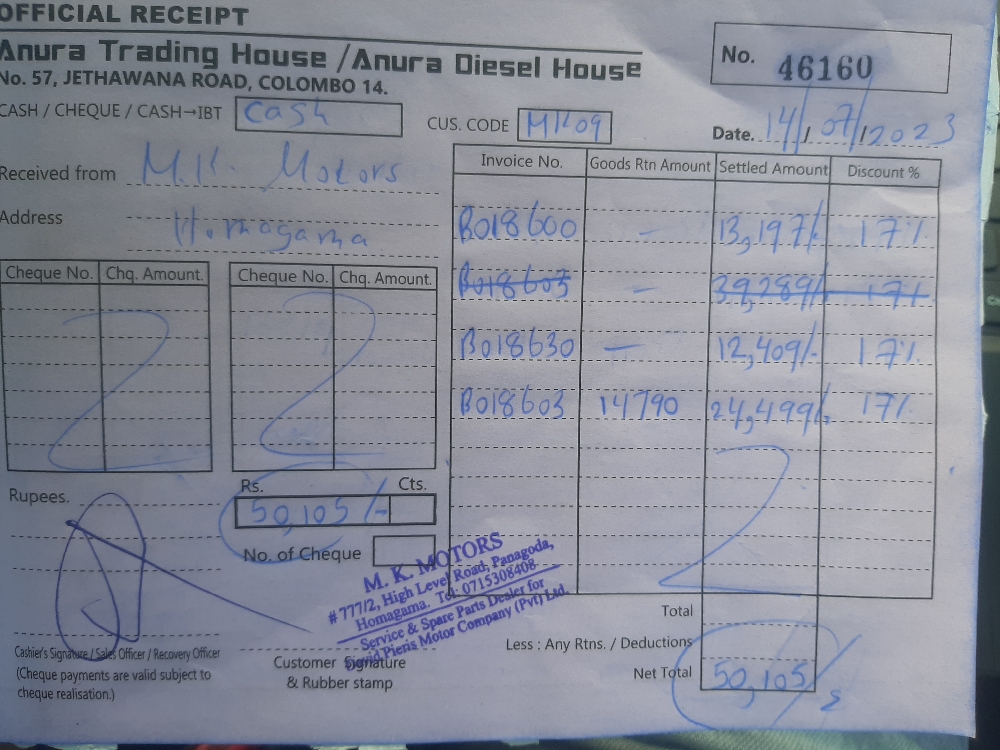 OFFICIAL RECEIPT
Anura Trading House /Anura Diesel House
No. 57, JETHAWANA ROAD, COLOMBO 14.
No. 46160
CASH / CHEQUE / CASH→IBT Cash
CUS. CODE MK09
Date. 14/07/2023
Received from M.K. Motors
Address Homagama
Invoice No. Goods Rtn Amount Settled Amount Discount %
B018600 — 13,197/- 17%
B018603 — 39,289/- 17%
B018630 — 12,409/- 17%
B018603 14790 24,499/- 17%
Cheque No. Chq. Amount. Cheque No. Chq. Amount.
Rupees.
Rs. Cts.
50,105/-
No. of Cheque
M. K. MOTORS
# 777/2, High Level Road, Panagoda,
Homagama. Tel: 0715308408
Service & Spare Parts Dealer for
David Pieris Motor Company (Pvt) Ltd.
Total
Less : Any Rtns. / Deductions
Net Total 50,105/
Cashier's Signature / Sales Officer / Recovery Officer
(Cheque payments are valid subject to
cheque realisation.)
Customer Signature
& Rubber stamp